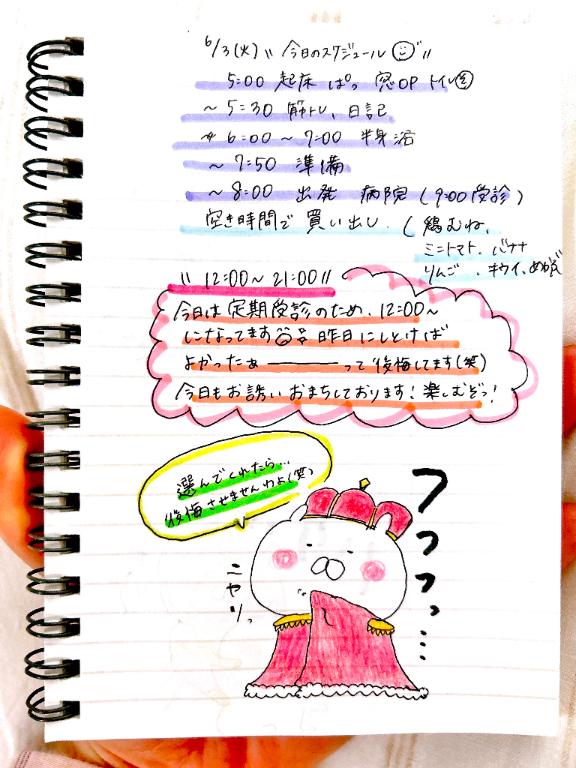 6/3(火) " 今日のスケジュール "
5:00 起床 ぱっ 窓OP トイレ
~ 5:30 筋トレ、日記
6:00 ~ 7:00 半身浴
~ 7:50 準備
~ 8:00 出発 病院 (9:00受診)
空き時間で買い出し. ( 鶏むね、
ミニトマト、バナナ
りんご、キウイ、めかぶ
" 12:00~ 21:00 "
今日は定期受診のため、12:00~
になってます 昨日にしとけば
よかったぁ ——— って後悔してます(笑)
今日もお誘いおまちしております! 楽しむぞっ!
選んでくれたら...
後悔させませんわよ(笑)
フっフっフっ...
ニヤリっ